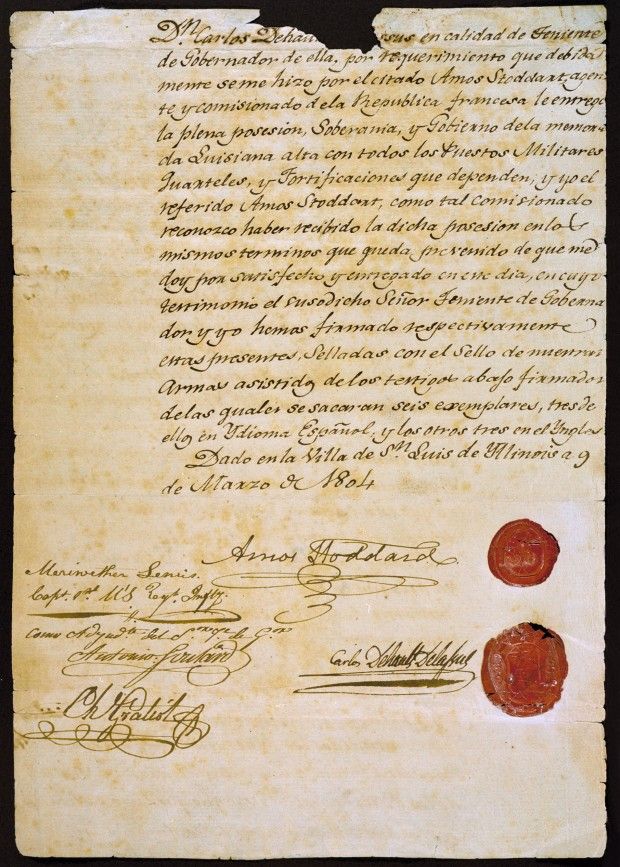 Dn. Carlos Dehau ssus en calidad de Teniente
de Gobernador de ella, por requerimiento que debida
mente se me hizo por el citado Amos Stoddart, agen
te y comisionado dela Republica francesa le entregó
la plena posesion, Soberania, y Gobierno dela memora
da Luisiana alta con todos los Puestos Militares
Quarteles, y Fortificaciones que dependen; y yo el
referido Amos Stoddart, como tal comisionado
reconozco haber recibido la dicha posesion en los
mismos terminos que queda prevenido de que me
doy por satisfecho y entregado en este dia, en cuyo
testimonio el susodicho Señor Teniente de Goberna
dor y yo hemos firmado respectivamente
estas presentes, Selladas con el Sello de nuestras
Armas asistidos de los testigos abajo firmados
de las quales se sacaran seis exemplares, tres de
ellos en Ydioma Español, y los otros tres en el Ingles
Dado en la Villa de Sn. Luis de Ilinois a 9
de Marzo de 1804
Amos Stoddard
Meriwether Lewis
Capt. 1st. U'S Regt. Infty.
Como Adyudte. del Sr.
Antonio Soulard
Carlos Dehault Delassus
Ch Gratiot